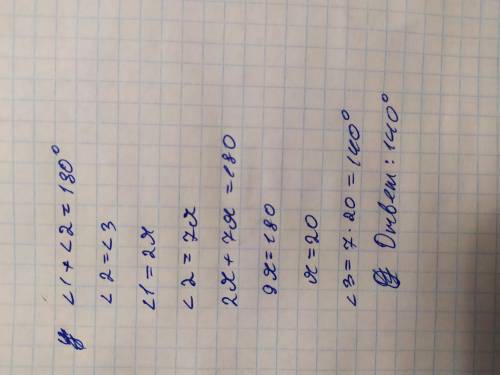 ∠1+∠2=180°
∠2=∠3
∠1=2x
∠2=7x
2x+7x=180
9x=180
x=20
∠3=7·20=140°
Ответ: 140°